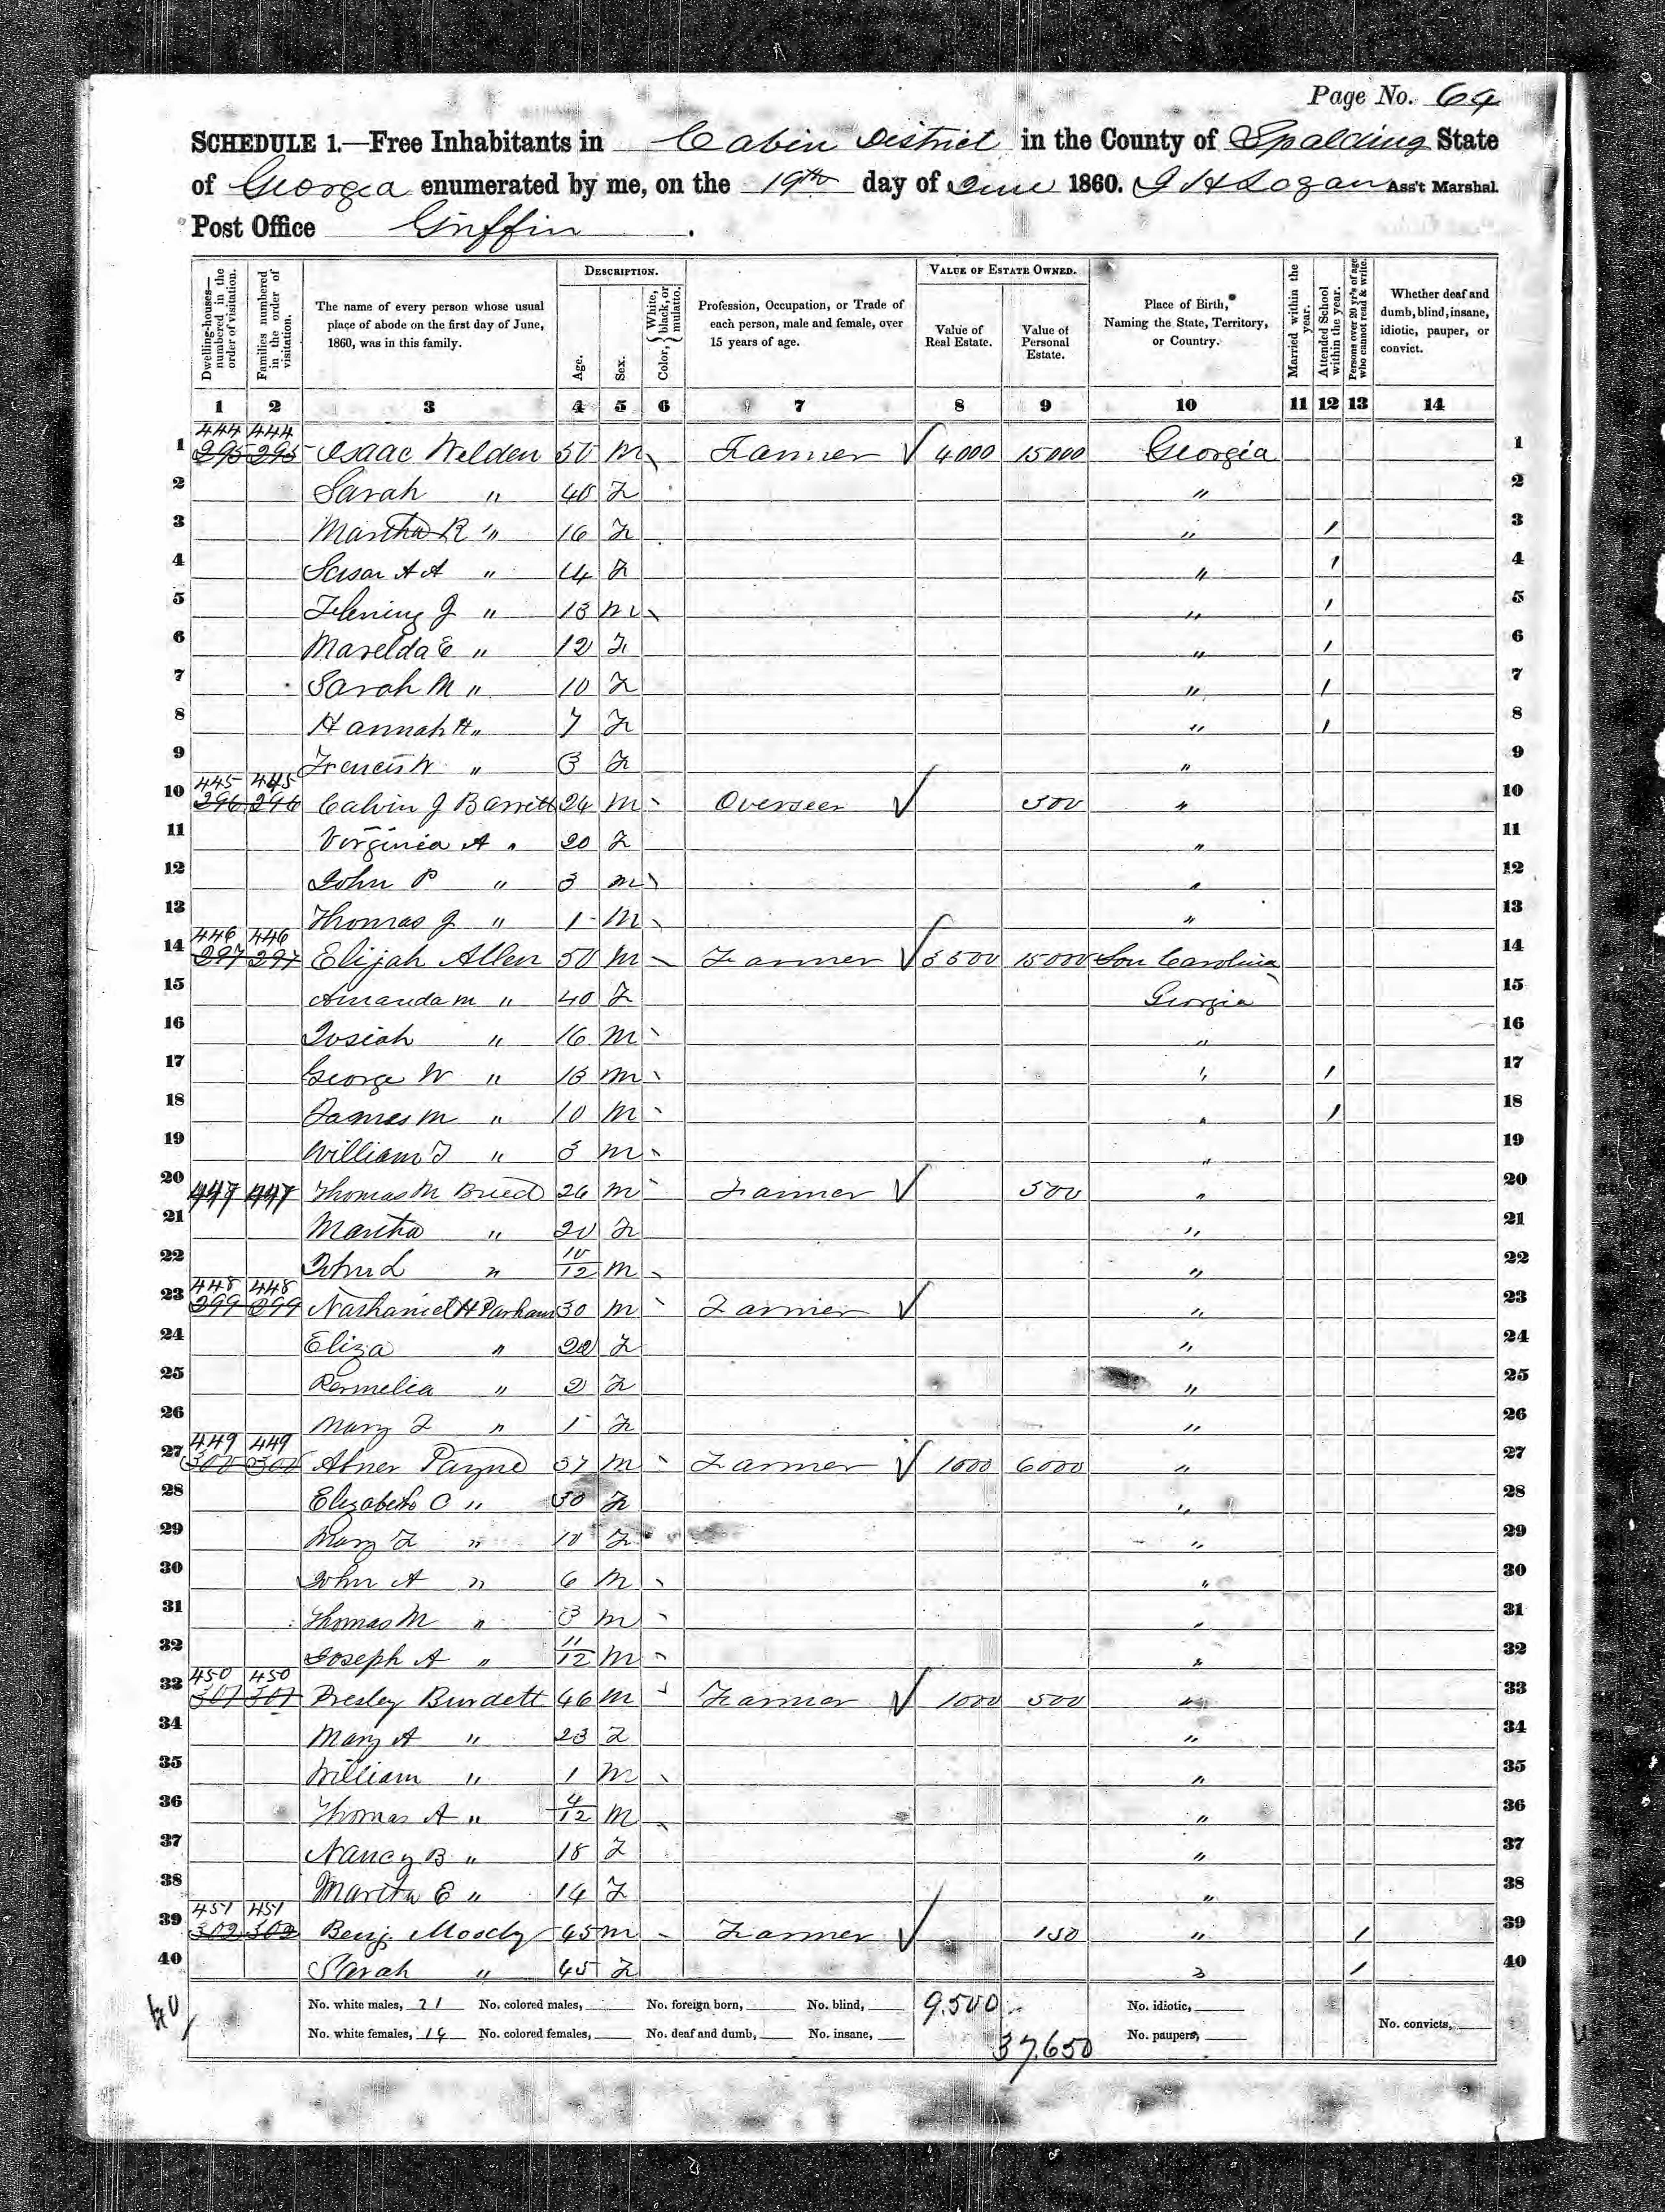 Page No. 64
SCHEDULE 1.—Free Inhabitants in Cabin District in the County of Spalding State
of Georgia enumerated by me, on the 19th day of June 1860. J H Logan Ass't Marshal.
Post Office Griffin.
DESCRIPTION. VALUE OF ESTATE OWNED.
Dwelling-houses—numbered in the order of visitation. Families numbered in the order of visitation. The name of every person whose usual place of abode on the first day of June, 1860, was in this family. Age. Sex. Color, { White, black, or mulatto. Profession, Occupation, or Trade of each person, male and female, over 15 years of age. Value of Real Estate. Value of Personal Estate. Place of Birth, Naming the State, Territory, or Country. Married within the year. Attended School within the year. Persons over 20 yr's of age who cannot read & write. Whether deaf and dumb, blind, insane, idiotic, pauper, or convict.
1 2 3 4 5 6 7 8 9 10 11 12 13 14
444 444
1 295 295 Isaac Welden 50 M Farmer ✓ 4000 15000 Georgia 1
2 Sarah " 40 F " 2
3 Martha R " 16 F " / 3
4 Susan A A " 14 F " / 4
5 Fleming J " 13 M " / 5
6 Marelda E " 12 F " / 6
7 Sarah M " 10 F " / 7
8 Hannah H " 7 F " / 8
9 Frances W " 3 F " 9
445 445
10 296 296 Calvin J Barritt 24 M Overseer ✓ 500 " 10
11 Virginia A " 20 F " 11
12 John P " 3 M " 12
13 Thomas J " 1 M " 13
446 446
14 297 297 Elijah Allen 50 M Farmer ✓ 3500 15000 Sou Carolina 14
15 Amanda M " 40 F Georgia 15
16 Josiah " 16 M " 16
17 George W " 13 M " / 17
18 James M " 10 M " / 18
19 William T " 3 M " 19
20 447 447 Thomas M Breed 26 M Farmer ✓ 500 " 20
21 Martha " 20 F " 21
22 John L " 10/12 M " 22
448 448
23 299 299 Nathaniel H Parham 30 M Farmer ✓ " 23
24 Eliza " 20 F " 24
25 Permelia " 2 F " 25
26 Mary F " 1 F " 26
449 449
27 300 300 Abner Payne 37 M Farmer ✓ 1000 6000 " 27
28 Elizabeth C " 30 F " 28
29 Mary F " 10 F " 29
30 John A " 6 M " 30
31 Thomas M " 3 M " 31
32 Joseph A " 11/12 M " 32
450 450
33 301 301 Presley Burdett 46 M Farmer ✓ 1000 500 " 33
34 Mary A " 23 F " 34
35 William " 1 M " 35
36 Thomas A " 4/12 M " 36
37 Nancy B " 18 F " 37
38 Martha E " 14 F " 38
451 451
39 302 302 Benj. Moody 45 M Farmer ✓ 150 " / 39
40 Sarah " 45 F " / 40
40 No. white males, 21 No. colored males, No. foreign born, No. blind, 9.500 No. idiotic,
No. white females, 19 No. colored females, No. deaf and dumb, No. insane, 37.650 No. paupers, No. convicts,